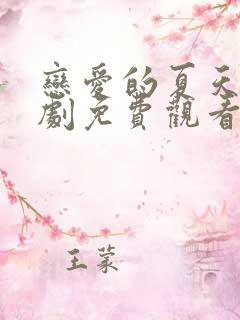 戀愛的夏天
劇免費觀看
王蒙